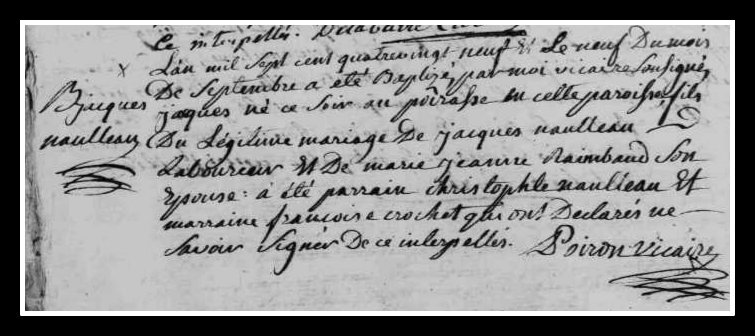 ce interpellés.
L'an mil sept cent quatrevingt neuf Et Le neuf Du mois
De Septembre a été Baptizé, par moi vicaire Soussigné,
B jacques
naulleau
jacques né ce Soir au poirasse en celle paroisse, fils
Du Légitime mariage De jacques naulleau
Laboureur Et De marie jeanne Raimbaud Son
Epouse : a été parrain christophle naulleau Et
marraine francoise crochet qui ont Declarés ne
Savoir Signér De ce interpellés. Poiron vicaire